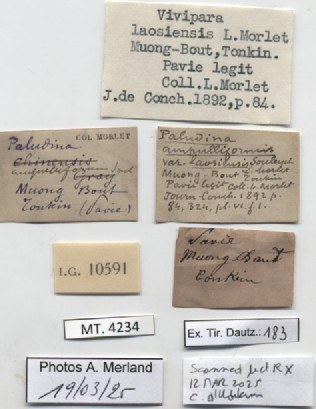 Vivipara
laosiensis L.Morlet
Muong-Bout, Tonkin.
Pavie legit
Coll.L.Morlet
J.de Conch.1892,p.84.
COL MORLET
Paludina
chinensis
Muong Bout
Tonkin (Pavie)
Paludina
ampulliformis
Muong-Bout L. Morlet
Tonkin
Pavie legit Coll. L. Morlet
Journ. Conch. 1892 p.
84, 324, pl. VI, f. 1.
I.G. 10591
Pavie
Muong Bout
Tonkin
MT. 4234
Ex. Tir. Dautz.: 183
Photos A. Merland
19/03/25
Scanned µCT RX
12 MAR 2025